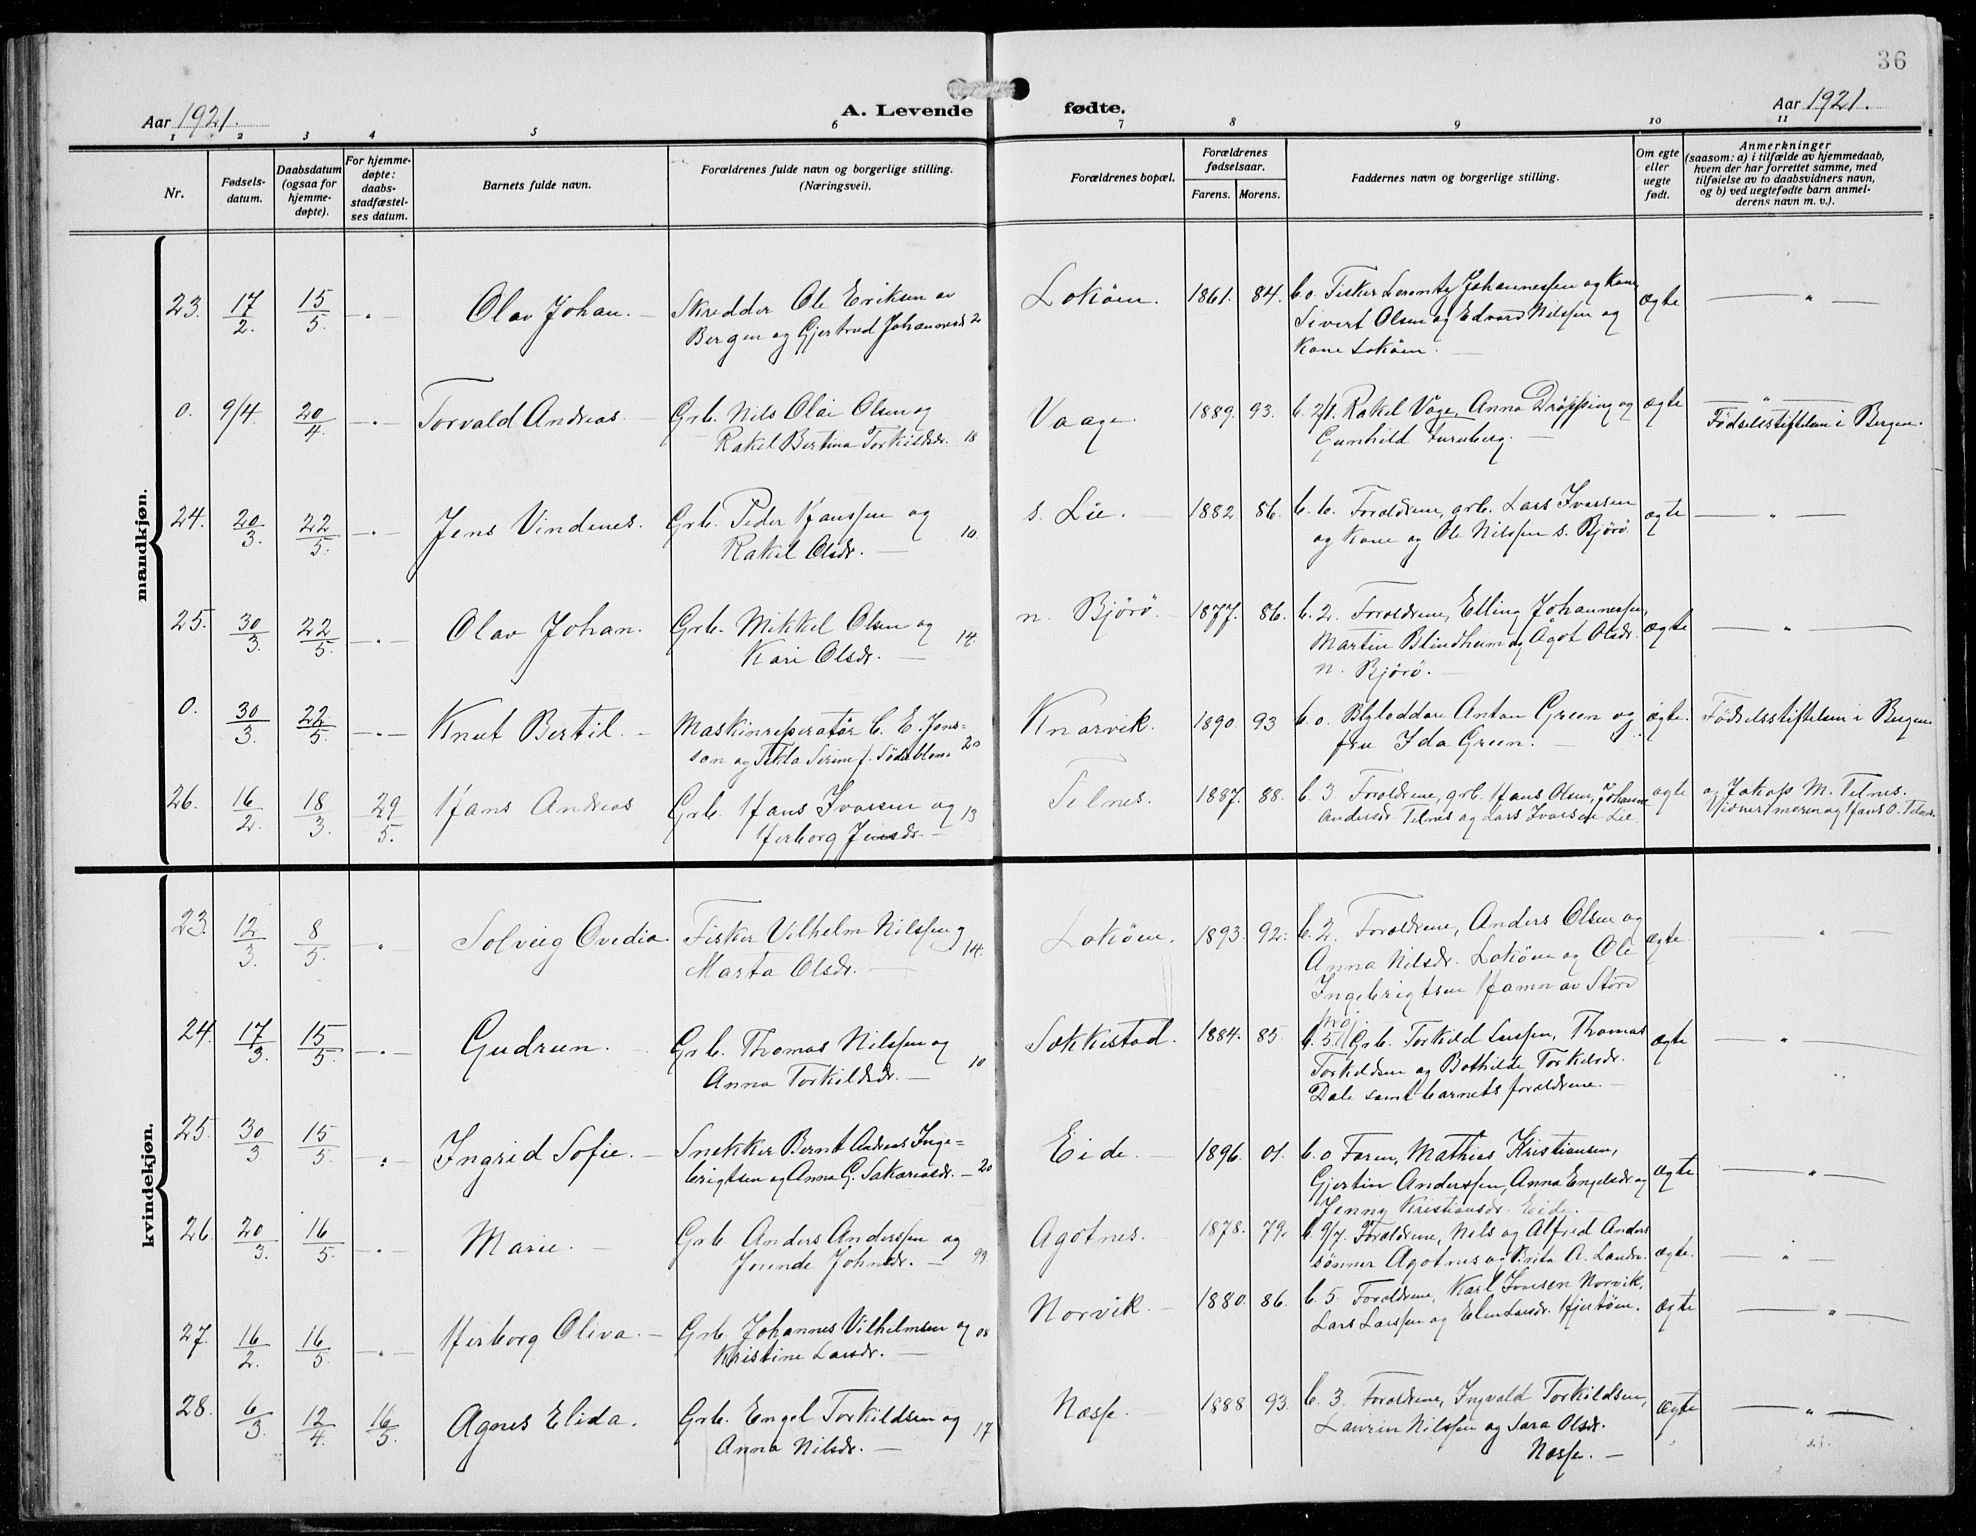 36
Aar 1921.
A. Levende fødte.
Aar 1921.
1 2 3 4 5 6 7 8 9 10 11
Nr.
Fødsels-
datum.
Daabsdatum
(ogsaa for
hjemme-
døpte).
For hjemme-
døpte:
daabs-
stadfæstel-
ses datum.
Barnets fulde navn.
Forældrenes fulde navn og borgerlige stilling.
(Næringsvei).
Forældrenes bopæl.
Forældrenes
fødselsaar.
Farens. Morens.
Faddernes navn og borgerlige stilling.
Om egte
eller
uegte
født.
Anmerkninger
(saasom: a) i tilfælde av hjemmedaab,
hvem der har forrettet samme, med
tilføielse av to daabsvidners navn,
og b) ved uegtefødte barn anmel-
derens navn m. v.).
mandkjøn.
23. 17/2. 15/5. — " — Olav Johan. — Skredder Ole Eriksen av
Bergen og Gjertrud Johannesd. 2
Lokøen. 1861. 84. b. o. Fisker Lorentz Johannessen og Kone
Sivert Olsen og Edvard Nilssen og
Kone Lokøen. —
ægte — " —
0. 9/4. 20/4 — " — Torvald Andreas. — Grb. Nils Olai Olsen og
Rakel Bertina Torkildsdr. 18
Vaage. 1889. 93. b. 2/1. Rakel Våge, Anna Dröpping og
Gunhild Furuberg. —
ægte — " —
Fødselsstiftelsen i Bergen.
24. 20/3. 22/5. — " — Jens Vindenes. Grb. Peder Hanssen og
Rakel Olsdr. — 10.
s. Lie. — 1882 86. b. 6. Forældrene, grb. Lars Ivarsen
og Kone og Ole Nilssen s. Bjørø.
ægte — " —
25. 30/3. 22/5. — " — Olav Johan. Grb. Mikkel Olsen og
Kari Olsdr. — 14.
n. Bjørø. — 1877. 86. b. 2. Forældrene, Elling Johannessen,
Martin Blindheim og Ågot Olsdr.
n. Bjørø. —
ægte — " —
0. 30/3. 22/5. — " — Knut Bertil. — Maskinreperatør C. E. Jons-
son og Tekla Sirene f. Söderblom. 20
Knarvik. 1890. 93 b. o. Blyloddare Anton Green og
fru Ida Green. —
ægte. Fødselsstiftelsen i Bergen
26. 16/2. 18/3. 29/5. Hans Andreas Grb. Hans Ivarsen og 13
Herborg Jensdr. —
Telnes. 1887. 88. b. 3. Forældrene, grb. Hans Olsen, Johanne
Andersdr. Telnes og Lars Ivarsen Lie
ægte a. Jakob M. Telnes.
Vidner: moren og Hans O. Telnes.
kvindekjøn.
23. 12/3. 8/5. " Solveig Ovedia. Fisker Vilhelm Nilssen og
Marta Olsdr. — 14.
Lokøen. 1893. 92. b. 2. Forældrene, Anders Olsen og
Anna Nilsdr. Lokøen og Ole
Ingebrigtsen Hamn av Stord
ægte — " —
24. 17/3. 15/5. — " — Gudrun. — Grb. Thomas Nilssen og
Anna Torkildsdr. — 10
Søkkestad. 1884. 85. b. 5. Grb. Torkild Larssen, Thomas
Torkildsen og Bothilde Torkelsdr.
Dale samt barnets forældrene. —
ægte — " —
25. 30/3 15/5. " — Ingrid Sofie. — Snekker Bernt Andreas Inge-
brigtsen og Anna G. Sakariasdr. — 20
Eide. — 1896. 01. b. o Faren, Mathias Kristiansen,
Gjertin Anderssen, Anna Engelsdr og
Jenny Kristiansdr. Eide.
ægte — " —
26. 20/3. 16/5. — " — Marie. — Grb. Anders Anderssen og
Jorinde Johnsdr. — 99.
Agotnes. 1878. 79. b. 9/7. Forældrene, Nils og Alfred Anders
sønner Agotnes og Brita A. Landro.
ægte. — " —
27. 16/2. 16/5. — " — Herborg Oliva. — Grb. Johannes Vilhelmsen og 08
Kristine Larsdr. —
Norvik. — 1880. 86. b. 5. Forældrene, Karl Ivarsen Norvik,
Lars Larssen og Elen Larsdr. Hjertøen.
ægte — " —
28. 6/3. 12/4. 16/5. Agnes Elida. Grb. Engel Torkildsen og 17
Anna Nilsdr. —
Næsse. 1888 93. b. 3. Forældrene, Ingvald Torkildsen,
Laurin Nilssen og Sara Olsdr.
Næsse. —
ægte — " —